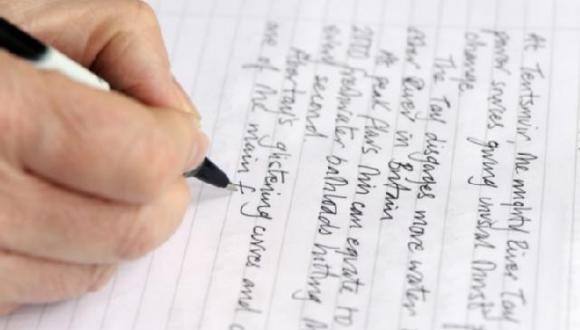 At Tentsmuir the mighty River Tay
giving
change
The Tay disgorges more water
other River in Britain
At peak flows this can equate to
2000 freshwater bathloads hitting
second.
Abertay's glistening curves and
one of the main f